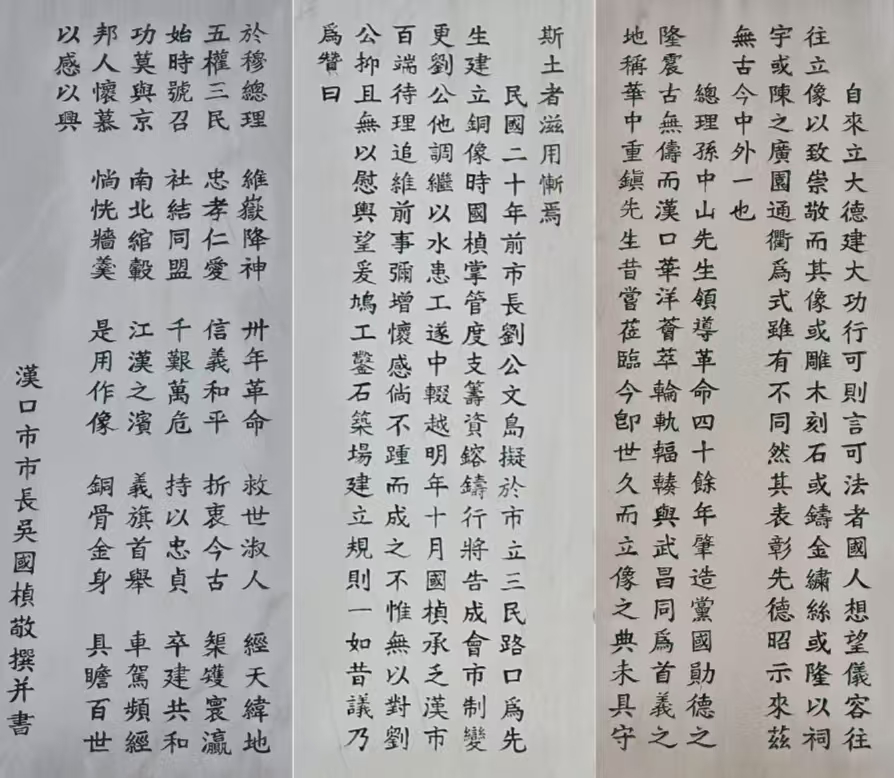 自來立大德建大功行可則言可法者國人想望儀容往
往立像以致崇敬而其像或雕木刻石或鑄金繡絲或隆以祠
宇或陳之廣園通衢爲式雖有不同然其表彰先德昭示來茲
無古今中外一也
總理孫中山先生領導革命四十餘年肇造黨國勛德之
隆震古無儔而漢口華洋薈萃輪軌輻輳與武昌同爲首義之
地稱華中重鎮先生昔嘗莅臨今卽世久而立像之典未具守
斯土者滋用慚焉
民國二十年前市長劉公文島擬於市立三民路口爲先
生建立銅像時國楨掌管度支籌資鎔鑄行將告成會市制變
更劉公他調繼以水患工遂中輟越明年十月國楨承乏漢市
百端待理追維前事彌增懷感倘不踵而成之不惟無以對劉
公抑且無以慰輿望爰鳩工鑿石築場建立規則一如昔議乃
爲贊曰
於穆總理 維嶽降神 卅年革命 救世淑人 經天緯地
五權三民 忠孝仁愛 信義和平 折衷今古 榘矱寰瀛
始時號召 社結同盟 千艱萬危 持以忠貞 卒建共和
功莫與京 南北綰轂 江漢之濱 義旗首舉 車駕頻經
邦人懷慕 惝怳牆羹 是用作像 銅骨金身 具瞻百世
以感以興
漢口市市長吳國楨敬撰并書